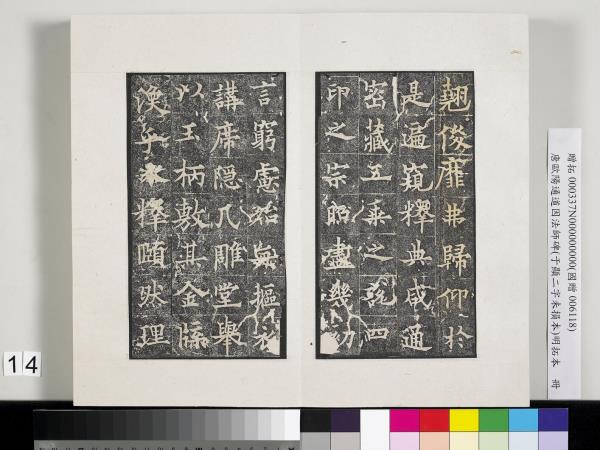 翹俊靡弗歸仰於
是遍窺釋典咸通
密藏五乘之乾四
印之宗照盡幾初
言窮慮始無摳衣
講席隱几雕堂舉
以玉柄敷其金牒
渙乎冰釋頤然理
贈拓 000337N000000000(國贈 006118)
唐歐陽通道因法師碑(于顯二字未損本)明拓本 冊
14